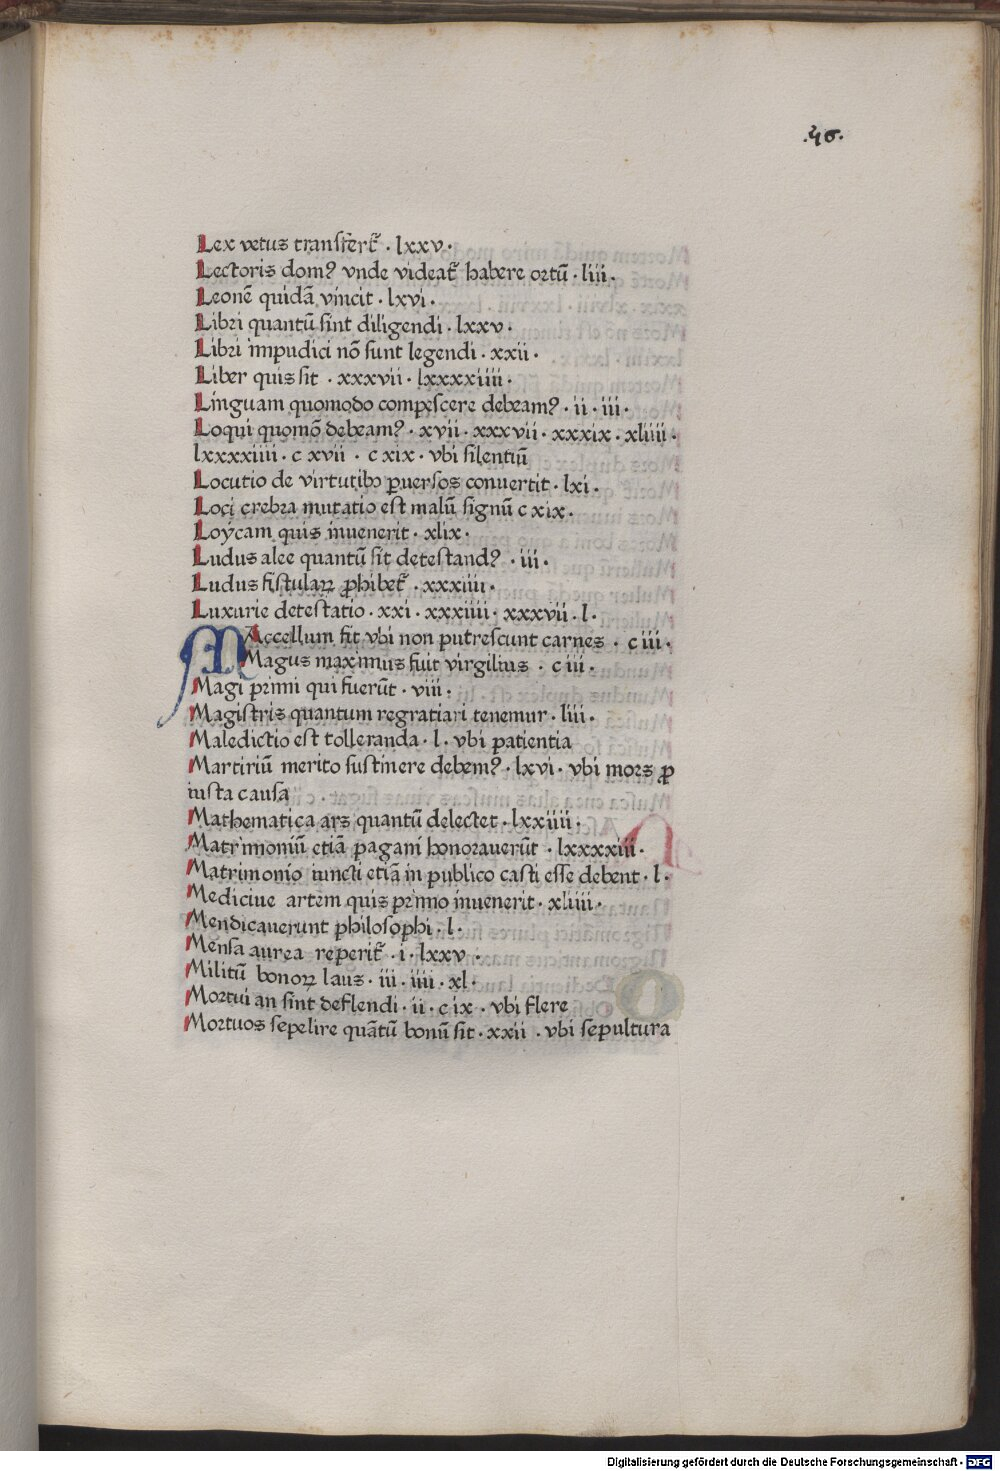 .46.
Lex vetus transfert᷑ · lxxv ·
Lectoris domꝰ vnde videat᷑ habere ortū · liii ·
Leonē quidā vincit · lxvi ·
Libri quantū sint diligendi · lxxv ·
Libri impudici nō sunt legendi · xxii ·
Liber quis sit · xxxvii · lxxxxiiii ·
Linguam quomodo compescere debeamꝰ · ii · iii ·
Loqui quomō debeamꝰ · xvii · xxxvii · xxxix · xliiii ·
lxxxxiiii · c xvii · c xix · vbi silentiū
Locutio de virtutibꝰ ꝑuersos conuertit · lxi ·
Loci crebra mutatio est malū signū c xix ·
Loycam quis inuenerit · xlix ·
Ludus alee quantū sit detestandꝰ · iii ·
Ludus fistulaꝝ ꝓhibet᷑ · xxxiiii ·
Luxurie detestatio · xxi · xxxiiii · xxxvii · l ·
MAccellum fit vbi non putrescunt carnes · c iii ·
Magus maximus fuit virgilius · c iii ·
Magi primi qui fuerūt · viii ·
Magistris quantum regratiari tenemur · liii ·
Maledictio est tolleranda · l · vbi patientia
Martiriū merito sustinere debemꝰ · lxvi · vbi mors ꝓ
iusta causa
Mathematica ars quantū delectet · lxxiiii ·
Matrimoniū etiā pagani honorauerūt · lxxxxiii ·
Matrimonio iuncti etiā in publico casti esse debent · l ·
Mediciue artem quis primo inuenerit · xliiii ·
Mendicauerunt philosophi · l ·
Mensa aurea reperit᷑ · i · lxxv ·
Militū bonoꝝ laus · iii · iiii · xl ·
Mortui an sint deflendi · ii · c ix · vbi flere
Mortuos sepelire quātū bonū sit · xxii · vbi sepultura
Digitalisierung gefördert durch die Deutsche Forschungsgemeinschaft - DFG